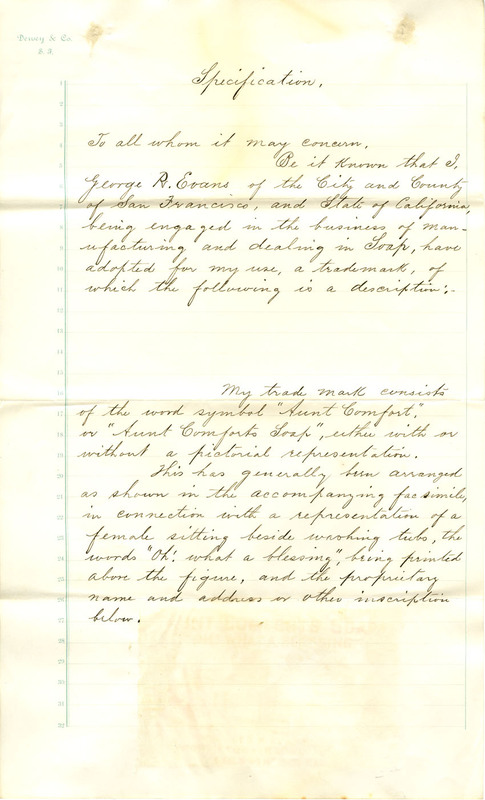 Dewey & Co.
S. F.
Specification.
To all whom it may concern.
Be it known that I,
George R. Evans of the City and County
of San Francisco, and State of California,
being engaged in the business of man-
ufacturing and dealing in Soap, have
adopted for my use, a trademark, of
which the following is a description:-
My trade mark consists
of the word symbol "Aunt Comfort,"
or "Aunt Comforts Soap", either with or
without a pictorial representation.
This has generally been arranged
as shown in the accompanying facsimile,
in connection with a representation of a
female sitting beside washing tubs, the
words "Oh! what a blessing", being printed
above the figure, and the proprietary
name and address or other inscription
below.